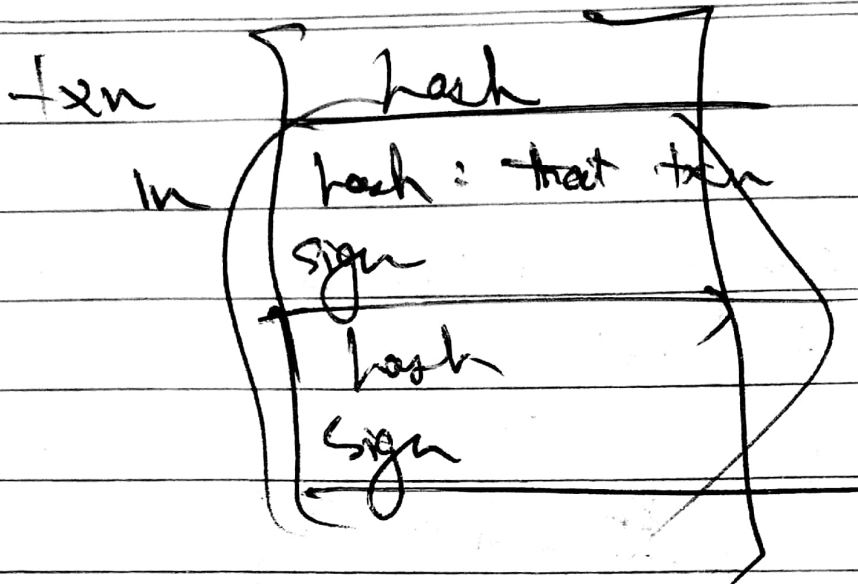 txn hash
in hash : that txn
sign
hash
sign